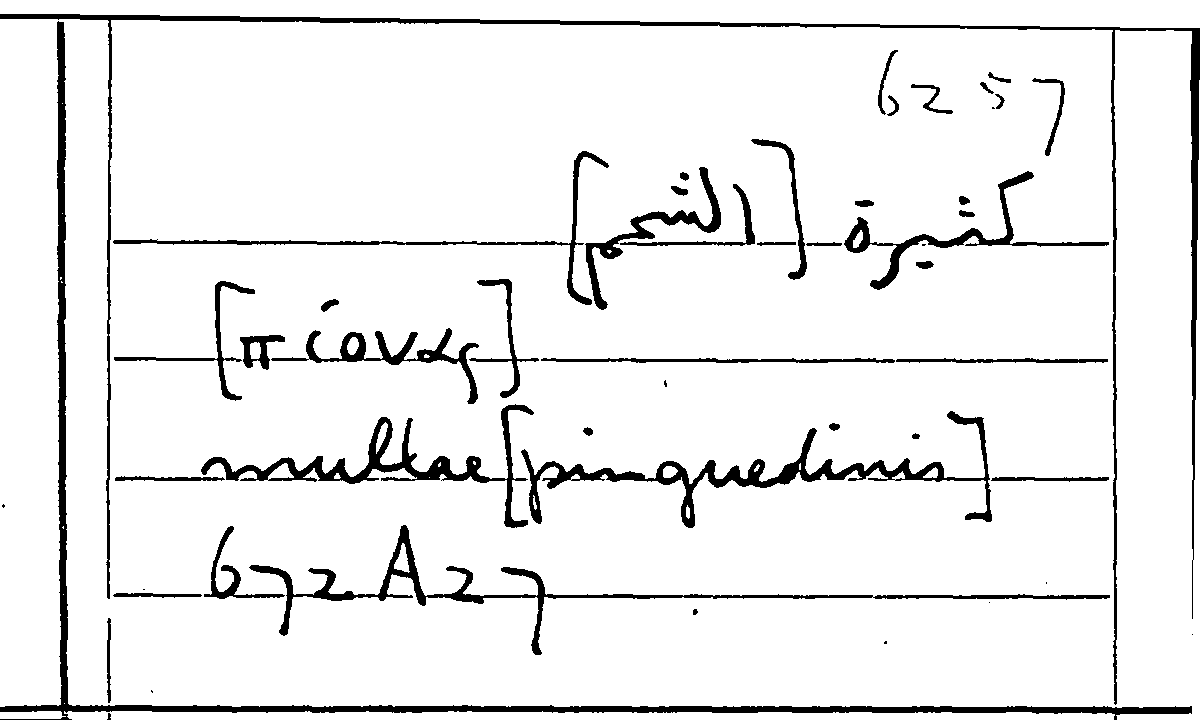 6257
كثيرة [الشحم]
[πίονας]
multae [pinguedinis]
672 A 27